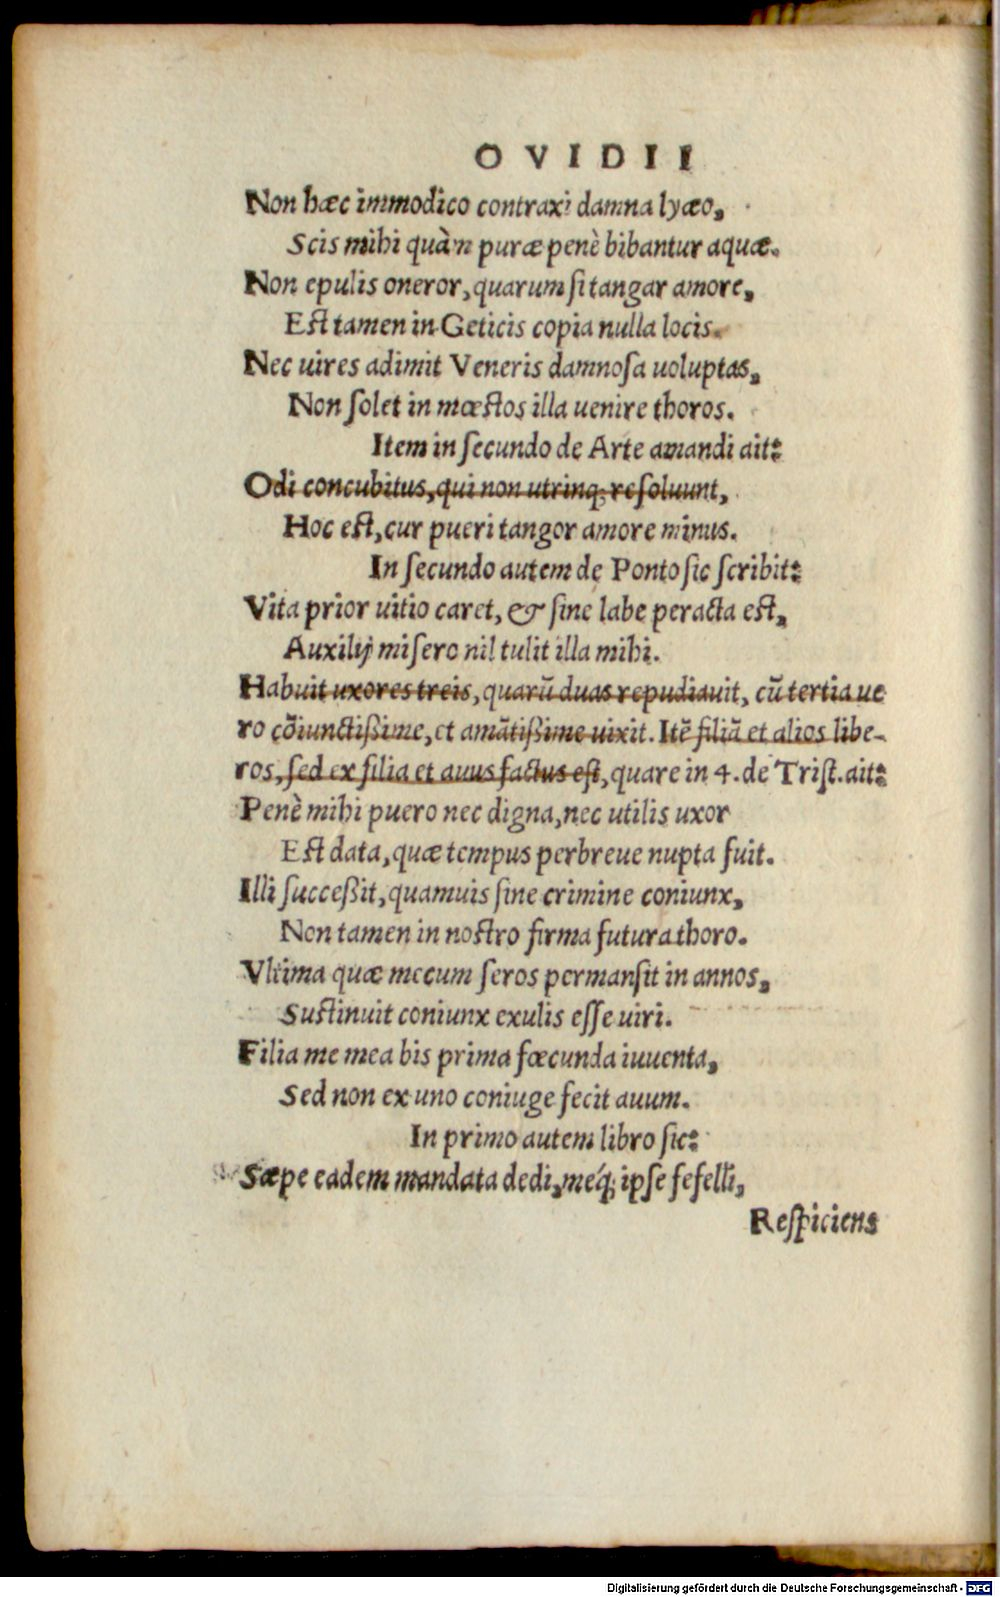 OVIDII
Non hæc immodico contraxi damna lyæo,
Scis mihi quàm puræ penè bibantur aquæ.
Non epulis oneror, quarum si tangar amore,
Est tamen in Geticis copia nulla locis.
Nec uires adimit Veneris damnosa uoluptas,
Non solet in mœstos illa uenire thoros.
Item in secundo de Arte amandi ait:
Odi concubitus, qui non utrinq; resoluunt,
Hoc est, cur pueri tangor amore minus.
In secundo autem de Ponto sic scribit:
Vita prior uitio caret, & sine labe peracta est,
Auxilij misero nil tulit illa mihi.
Habuit uxores treis, quarū duas repudiauit, cū tertia ue
ro cōiunctißime, et amātißime uixit. Itē filiā et alios libe-
ros, sed ex filia et auus factus est, quare in 4. de Trist. ait:
Penè mihi puero nec digna, nec utilis uxor
Est data, quæ tempus perbreue nupta fuit.
Illi succeßit, quamuis sine crimine coniunx,
Non tamen in nostro firma futura thoro.
Vltima quæ mecum seros permansit in annos,
Sustinuit coniunx exulis esse uiri.
Filia me mea bis prima fœcunda iuuenta,
Sed non ex uno coniuge fecit auum.
In primo autem libro sic:
Sæpe eadem mandata dedi, meq́; ipse fefelli,
Respiciens
Digitalisierung gefördert durch die Deutsche Forschungsgemeinschaft - DFG